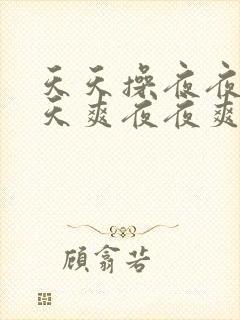 天天操夜夜
天爽夜夜爽
顾翕苦